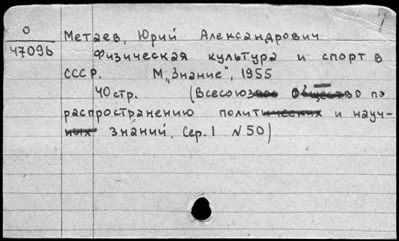 О
47096
Метаев, Юрий Александрович
Физическая культура и спорт в
СССР. М, "Знание", 1955
40 стр. (Всесоюзное Общество по
распространению политических и науч-
ных знаний. Сер. I N 50)